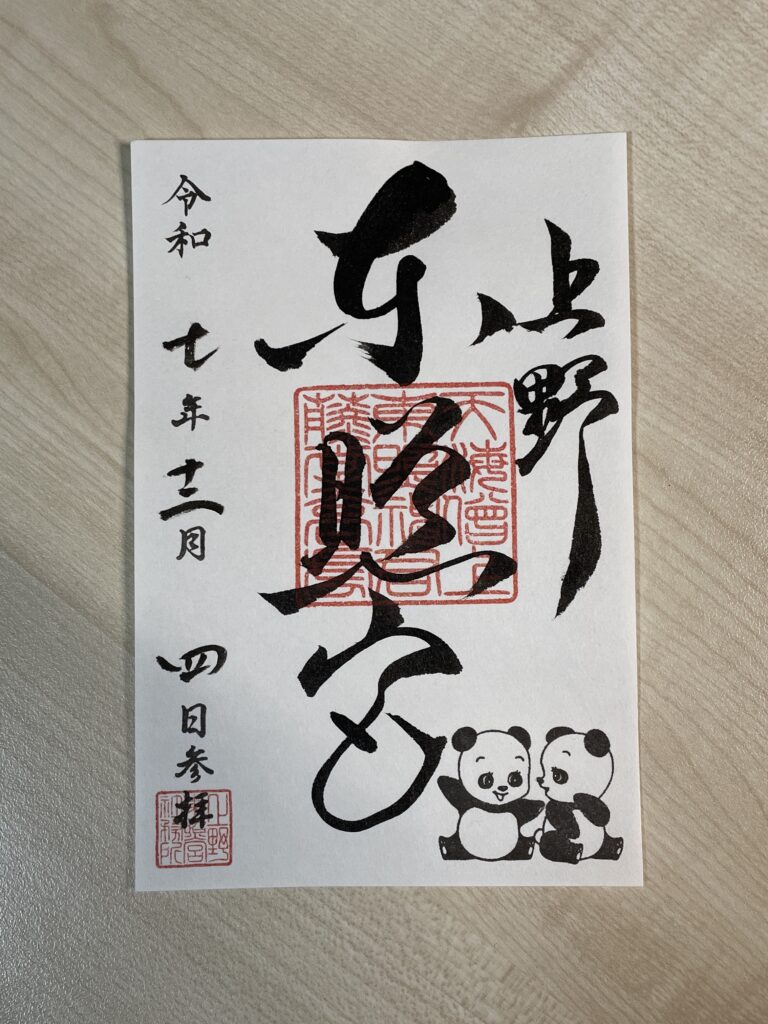 上野
東照宮
天海僧正
東照神君
藤堂高虎
令和 七年 十二月 四日参拝
上野
東照宮
社務所